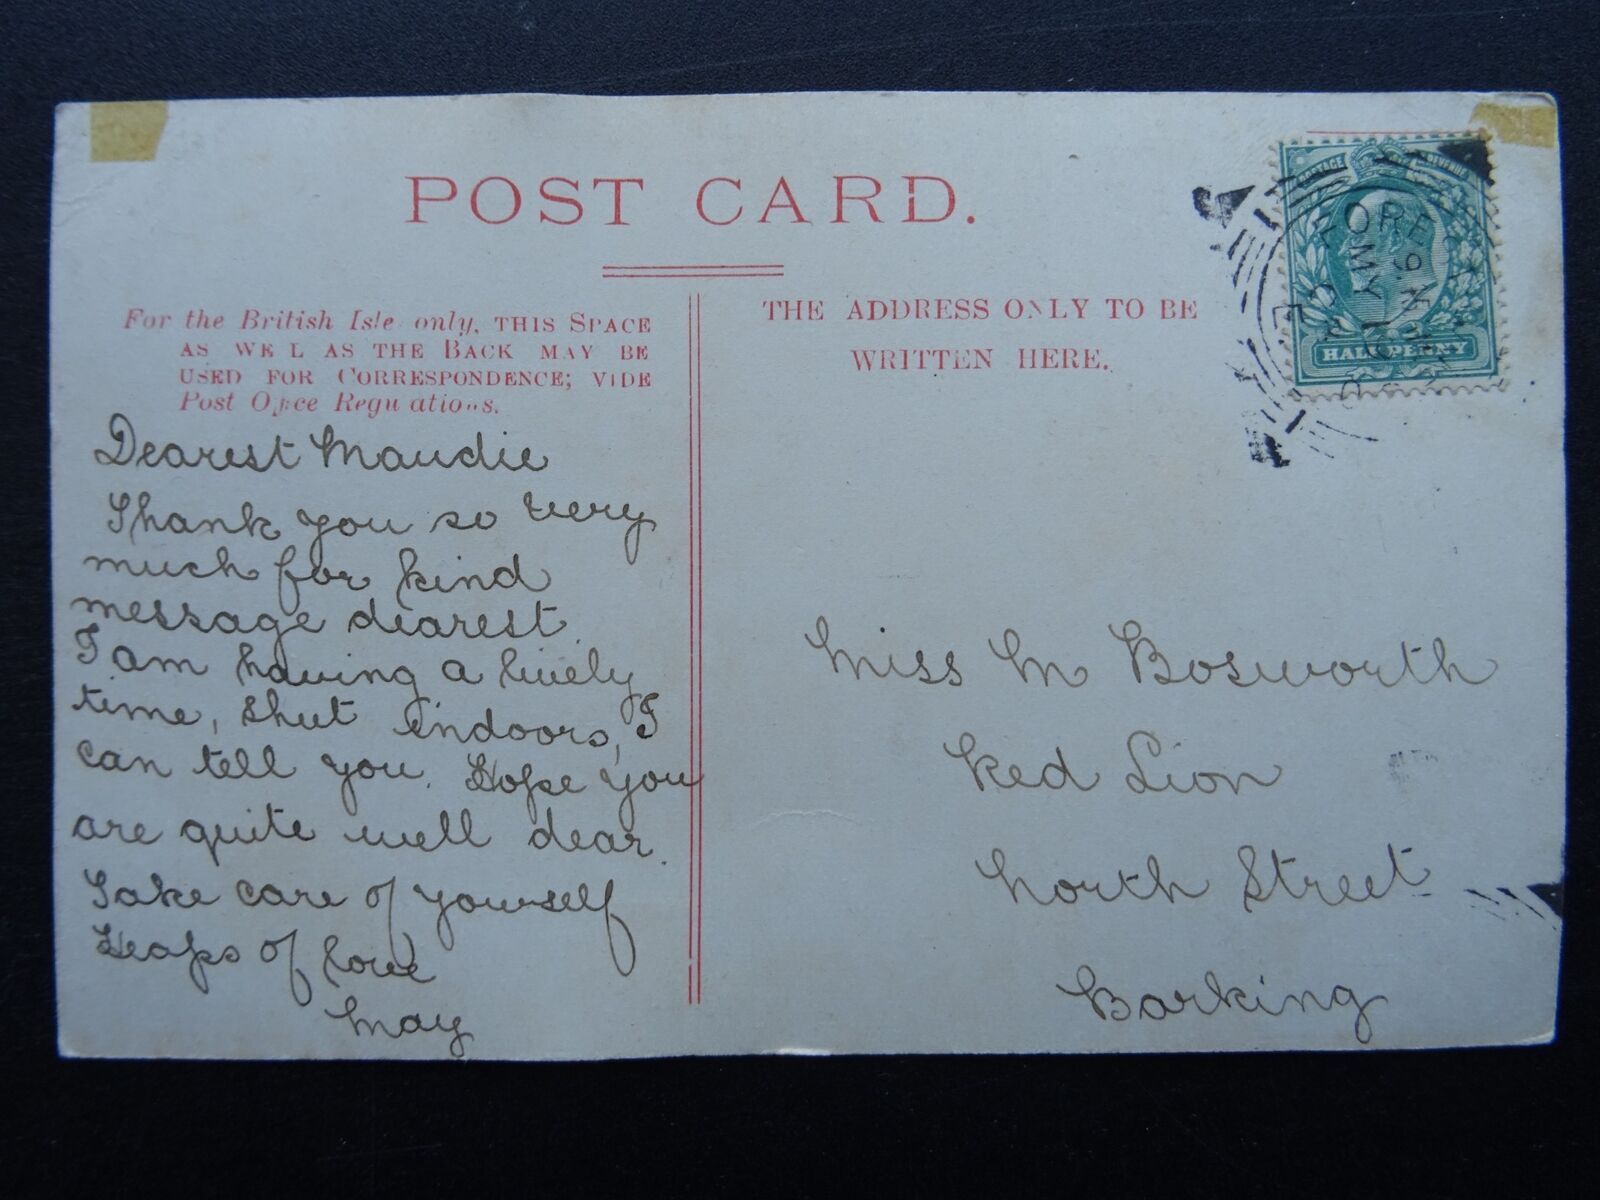 POST CARD.
For the British Isle only, THIS SPACE
AS WE L AS THE BACK MAY BE
USED FOR CORRESPONDENCE; VIDE
Post Office Regu ations.
Dearest Maudie
Thank you so very
much for kind
message dearest.
I am having a lively
time, shut indoors, I
can tell you. Hope you
are quite well dear.
Take care of yourself
Heaps of love
May
THE ADDRESS ONLY TO BE
WRITTEN HERE.
POSTAGE REVENUE
HALF PENNY
FORE
MY 19
Miss M Bosworth
Red Lion
North Street
Barking